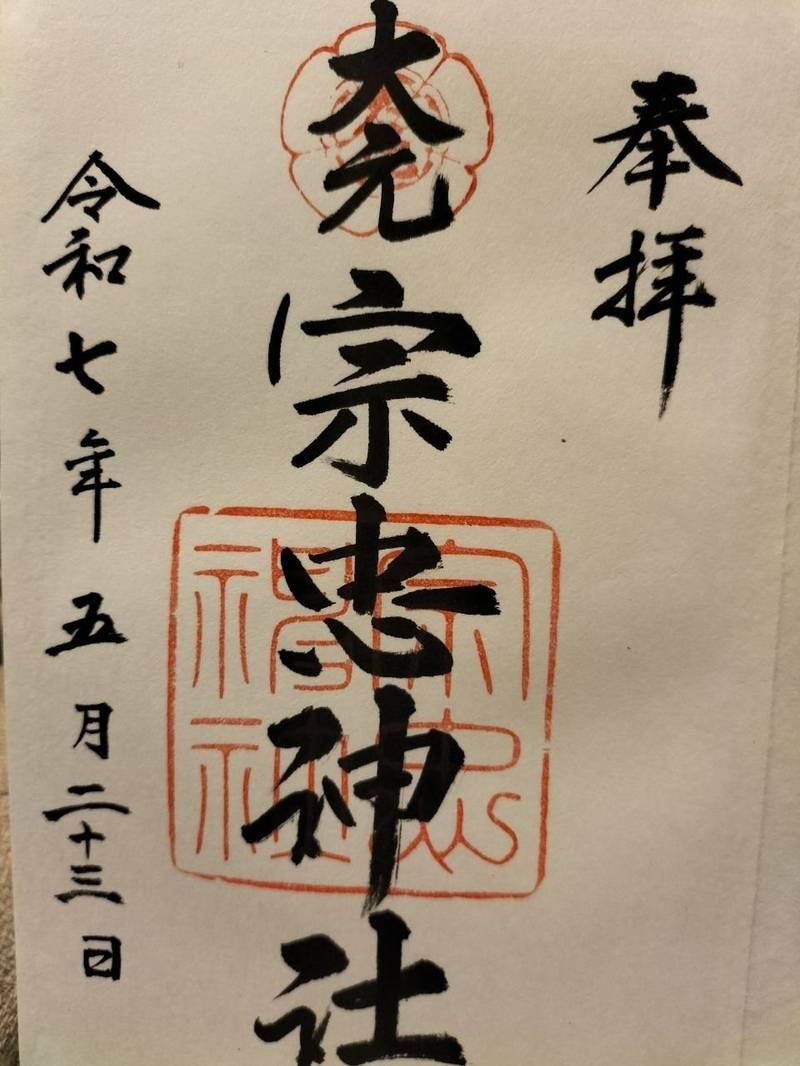 奉拝
大元宗忠神社
令和七年五月二十三日
宗忠
神社